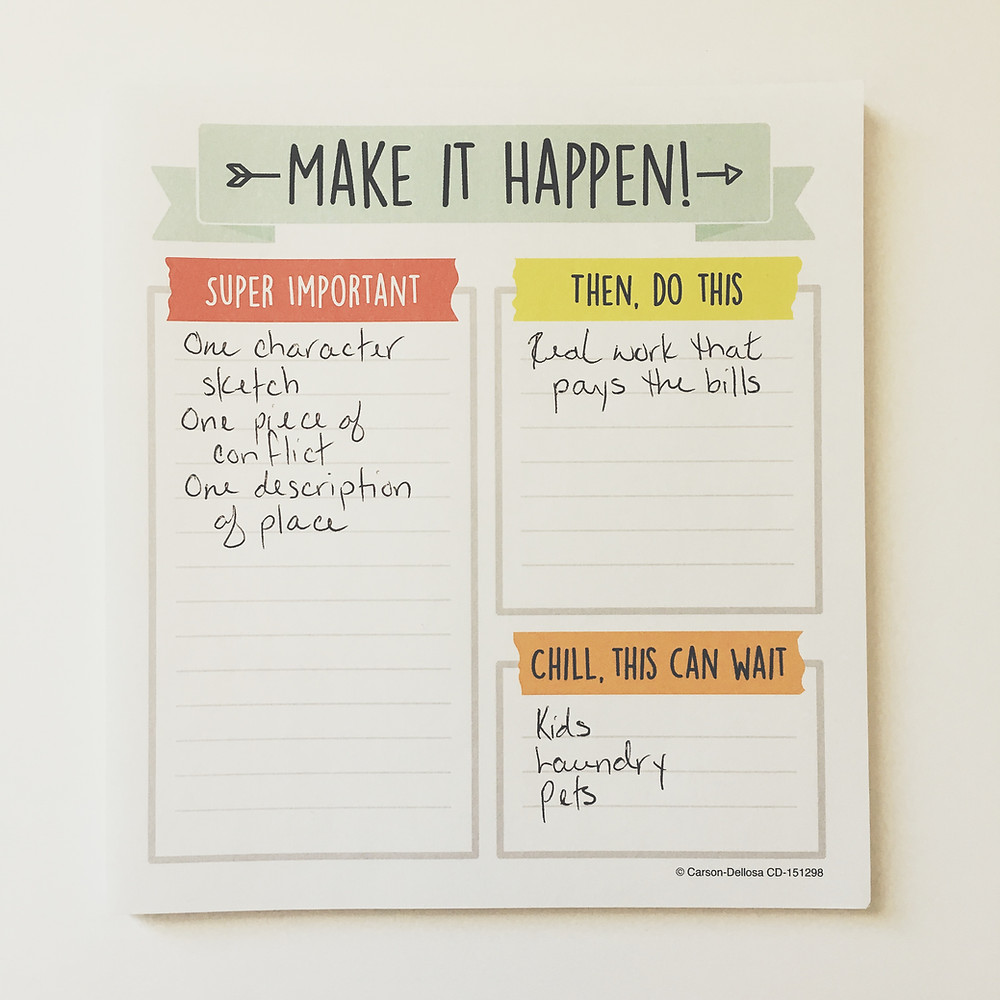 MAKE IT HAPPEN!
SUPER IMPORTANT
One character
sketch
One piece of
conflict
One description
of place
THEN, DO THIS
Real work that
pays the bills
CHILL, THIS CAN WAIT
Kids
Laundry
Pets
© Carson-Dellosa CD-151298